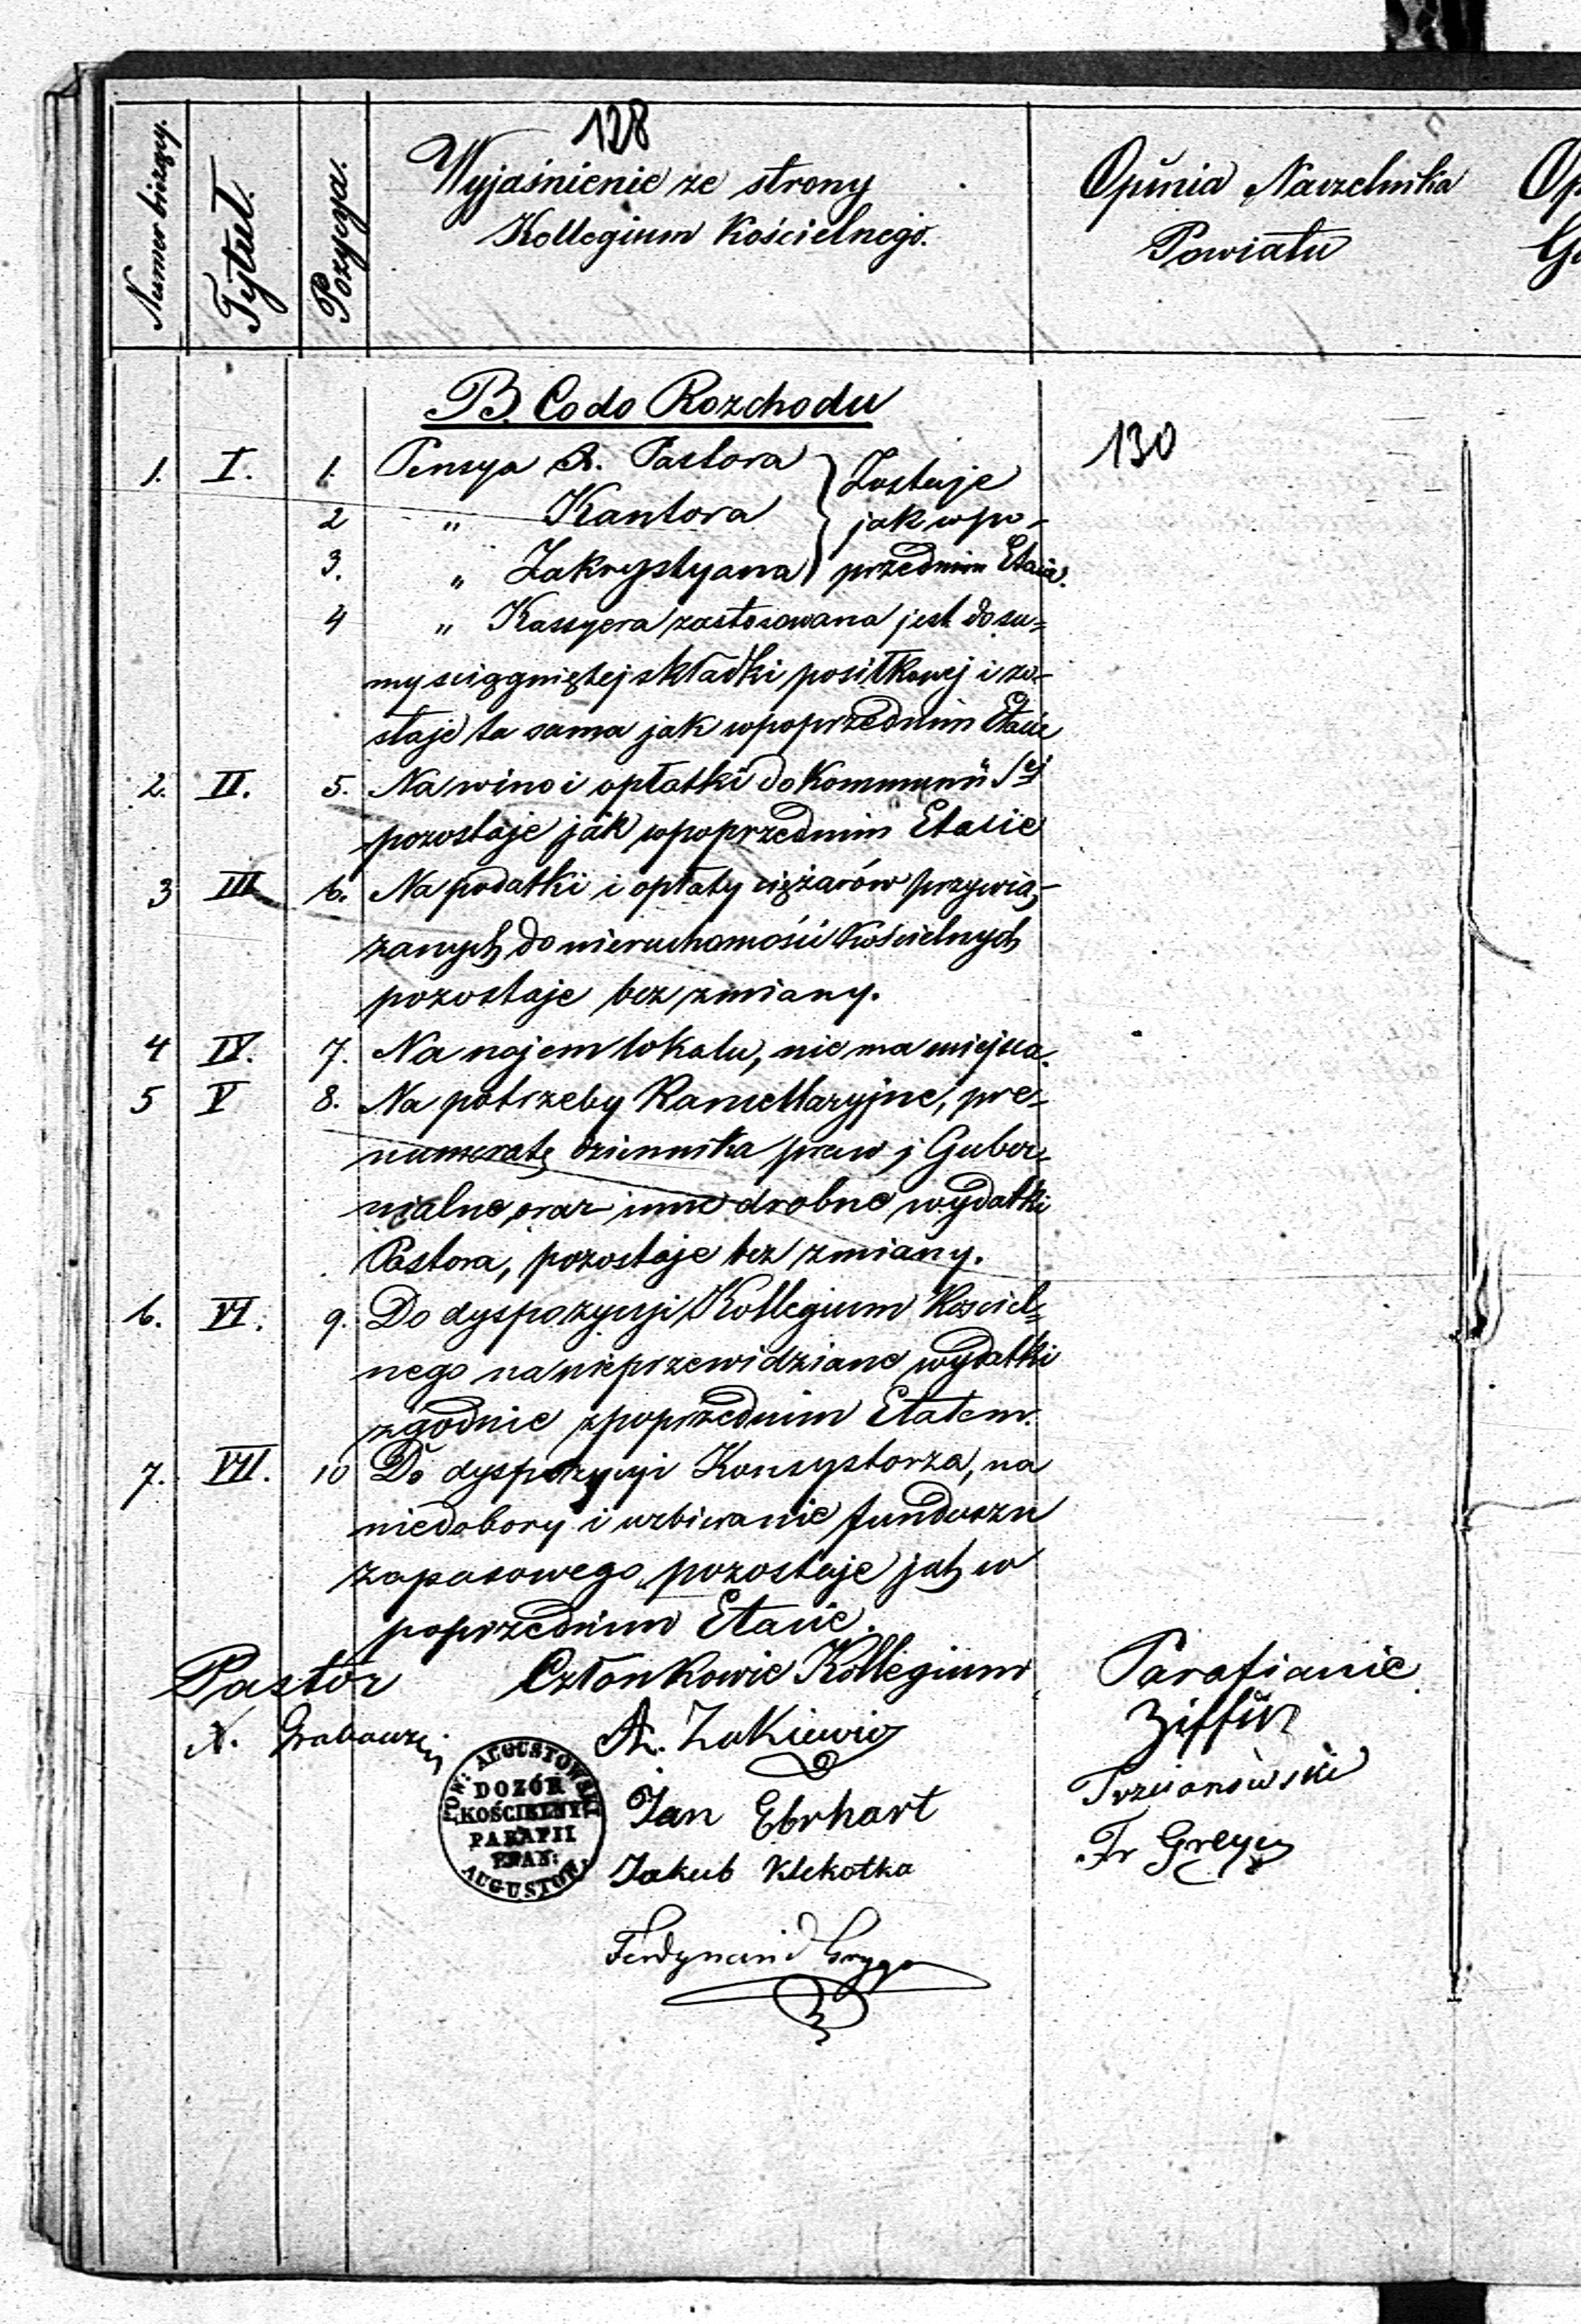 128
Numer bieżący.
Tytuł.
Pozycya.
Wyjaśnienie ze strony
Kollegium Kościelnego.
Opinia Naczelnika
Powiatu
B. Co do Rozchodu
130
1. I. 1. Pensya X. Pastora } Zostaje
2 " Kantora } jak w po-
3. " Zakrystyana } przednim Etacie.
4 " Kassyera zastosowana jest do su=
my ściągniętej składki posiłkowej i zo-
staje ta sama jak w poprzednim Etacie
2. II. 5. Na wino i opłatki do Kommunii Sej
pozostaje jak w poprzednim Etacie
3 III 6. Na podatki i opłaty ciężarów przywią-
zanych do nieruchomości Kościelnych
pozostaje bez zmiany.
4 IV. 7. Na najem lokalu, nie ma miejsca.
5 V 8. Na potrzeby Kancellaryjne, pre-
numeratę dziennika praw i Guber-
nialne oraz inne drobne wydatki
Pastora, pozostaje bez zmiany.
6. VI. 9. Do dyspozycyi Kollegium Kościel=
nego na nieprzewidziane wydatki
zgodnie z poprzednim Etatem.
7. VII. 10 Do dyspozycyi Konsystorza, na
niedobory i uzbieranie funduszu
zapasowego, pozostaje jak w
poprzednim Etacie.
Pastor Członkowie Kollegium Parafianie
Jan Ebrhart
Jakub Klekotka
Ferdynand Gryga
POW: AUGUSTOWSKI
DOZÓR
KOŚCIELNY
PARAFII
EWAN:
AUGUSTOW.